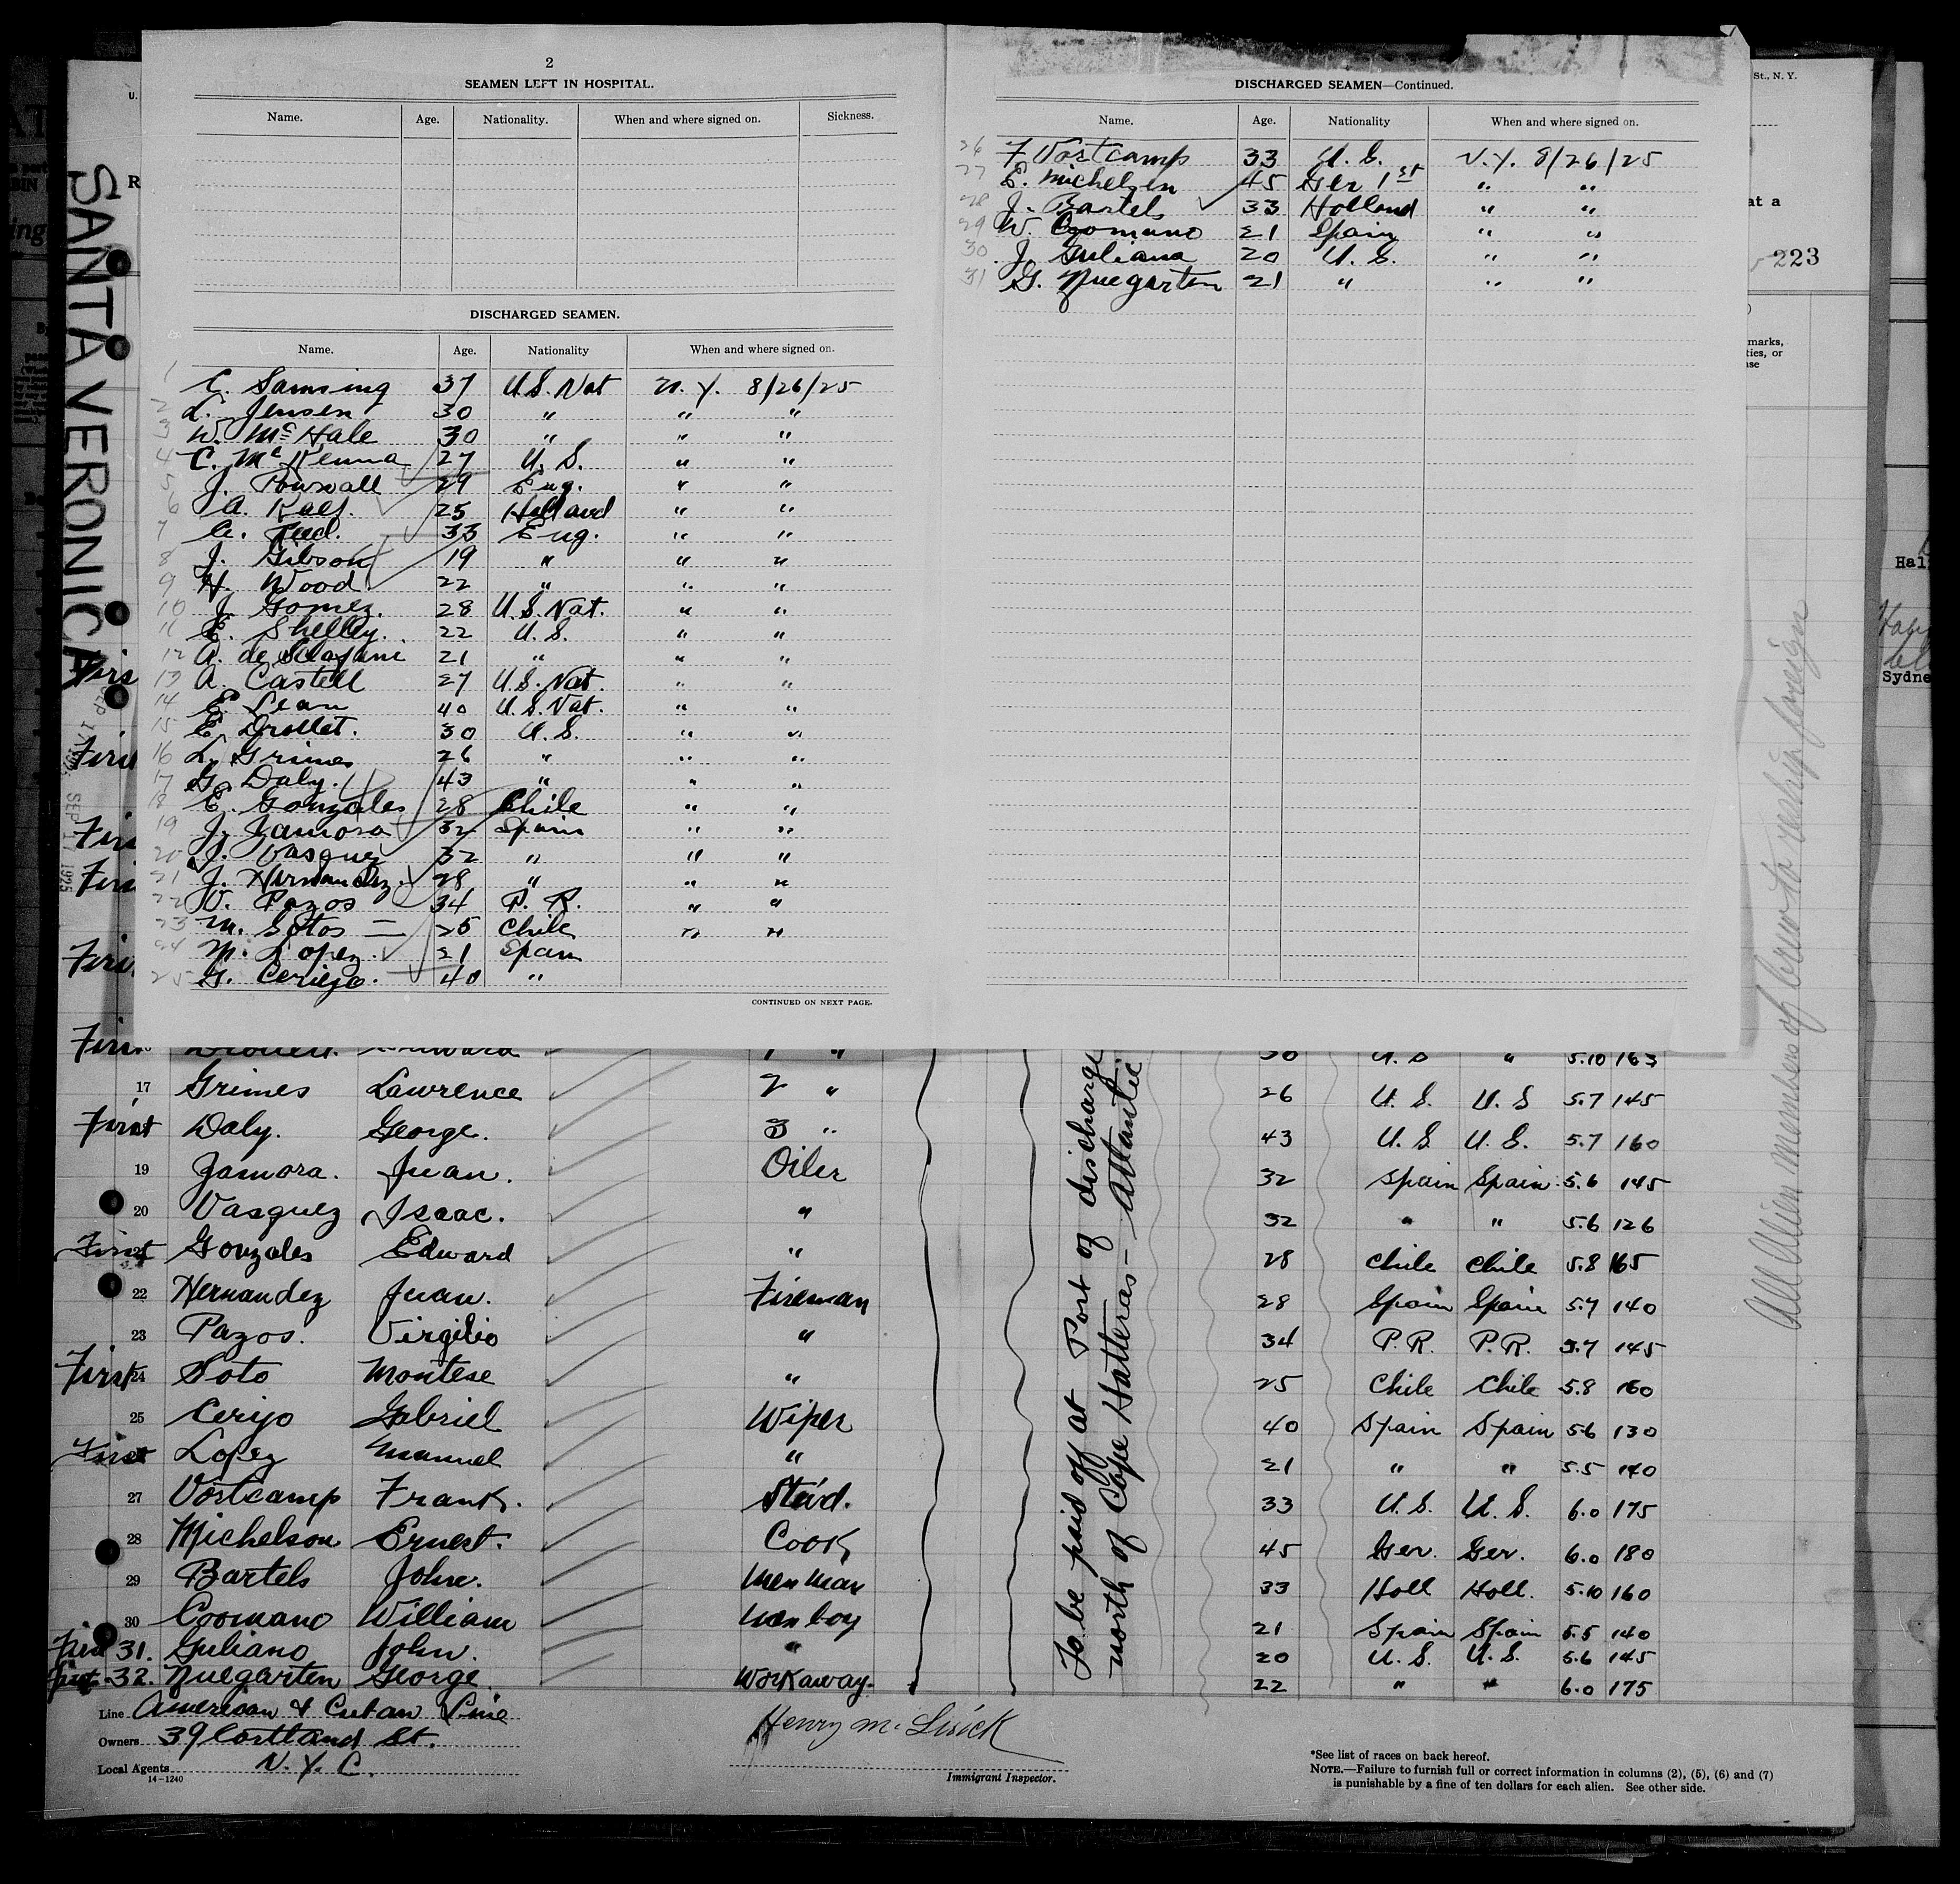 2
SEAMEN LEFT IN HOSPITAL.
Name. Age. Nationality. When and where signed on. Sickness.
DISCHARGED SEAMEN.
Name. Age. Nationality When and where signed on.
1 C. Samsing 37 U.S. Nat N. Y. 8/26/25
2 L. Jensen 30 " " "
3 W. McHale 30 " " "
4 C. McKenna 27 U. S. " "
5 J. Pownall 29 Eng. " "
6 A. Kalf. 25 Holland " "
7 A. Teed. 33 Eng. " "
8 J. Gibson 19 " " "
9 H. Wood 22 " " "
10 J. Gomez. 28 U.S. Nat. " "
11 E. Shelley. 22 U. S. " "
12 A. de Sclafani 21 " " "
13 A. Castell 27 U.S. Nat. " "
14 E. Lean 40 U.S. Nat. " "
15 E. Drollet. 30 U.S. " "
16 L. Grimes 26 " " "
17 G. Daly. 43 " " "
18 E. Gonzales 28 Chile " "
19 J. Zamora 32 Spain " "
20 J. Vasquez 32 " " "
21 J. Hernandez. 28 " " "
22 V. Pazos 34 P. R. " "
23 M. Sotos 25 Chile " "
24 M. Lopez. 21 Spain
25 G. Ceriejo. 40 "
CONTINUED ON NEXT PAGE.
DISCHARGED SEAMEN—Continued.
Name. Age. Nationality When and where signed on.
26 F. Vortcamp 33 U. S. N.Y. 8/26/25
27 E. Michelsen 45 Ger 1st " "
28 J. Bartels 33 Holland " "
29 W. Coomano 21 Spain " "
30 J. Guliana 20 U. S. " "
31 G. Nuegarten 21 " " "
St., N. Y.
at a
223
marks,
ties, or
se
Sydne
SANTA VERONICA
SEP 11 1925
30 U. S " 5.10 163
17 Grimes Lawrence 2 " 26 U. S. U. S 5.7 145
First Daly. George. 3 " 43 U. S U. S. 5.7 160
19 Zamora. Juan. Oiler 32 Spain Spain 5.6 145
20 Vasquez Isaac. " 32 " " 5.6 126
First Gonzales Edward " 28 Chile Chile 5.8 165
22 Hernandez Juan. Fireman 28 Spain Spain 5.7 140
23 Pazos. Virgilio " 34 P.R. P.R. 5.7 145
First 24 Soto Montese " 25 Chile Chile 5.8 160
25 Cerijo Gabriel Wiper 40 Spain Spain 5.6 130
First Lopez Manuel " 21 " " 5.5 140
27 Vortcamp Frank. Stew'd. 33 U. S. U. S. 6.0 175
28 Michelson Ernest. Cook 45 Ger. Ger. 6.0 180
29 Bartels John. Mess Man 33 Holl Holl. 5.10 160
30 Coomano William Mess boy 21 Spain Spain 5.5 140
First 31. Guliano John. " 20 U. S. U. S. 5.6 145
First 32. Nuegarten George Workaway. 22 " " 6.0 175
To be paid off at Port of discharge
north of Cape Hatteras – Atlantic
All Alien members of crew to reship foreign
Line American & Cuban Line
Owners 39 Cortland St.
Local Agents N. Y. C.
14—1240
Henry M.
Immigrant Inspector.
*See list of races on back hereof.
NOTE.—Failure to furnish full or correct information in columns (2), (5), (6) and (7)
is punishable by a fine of ten dollars for each alien. See other side.